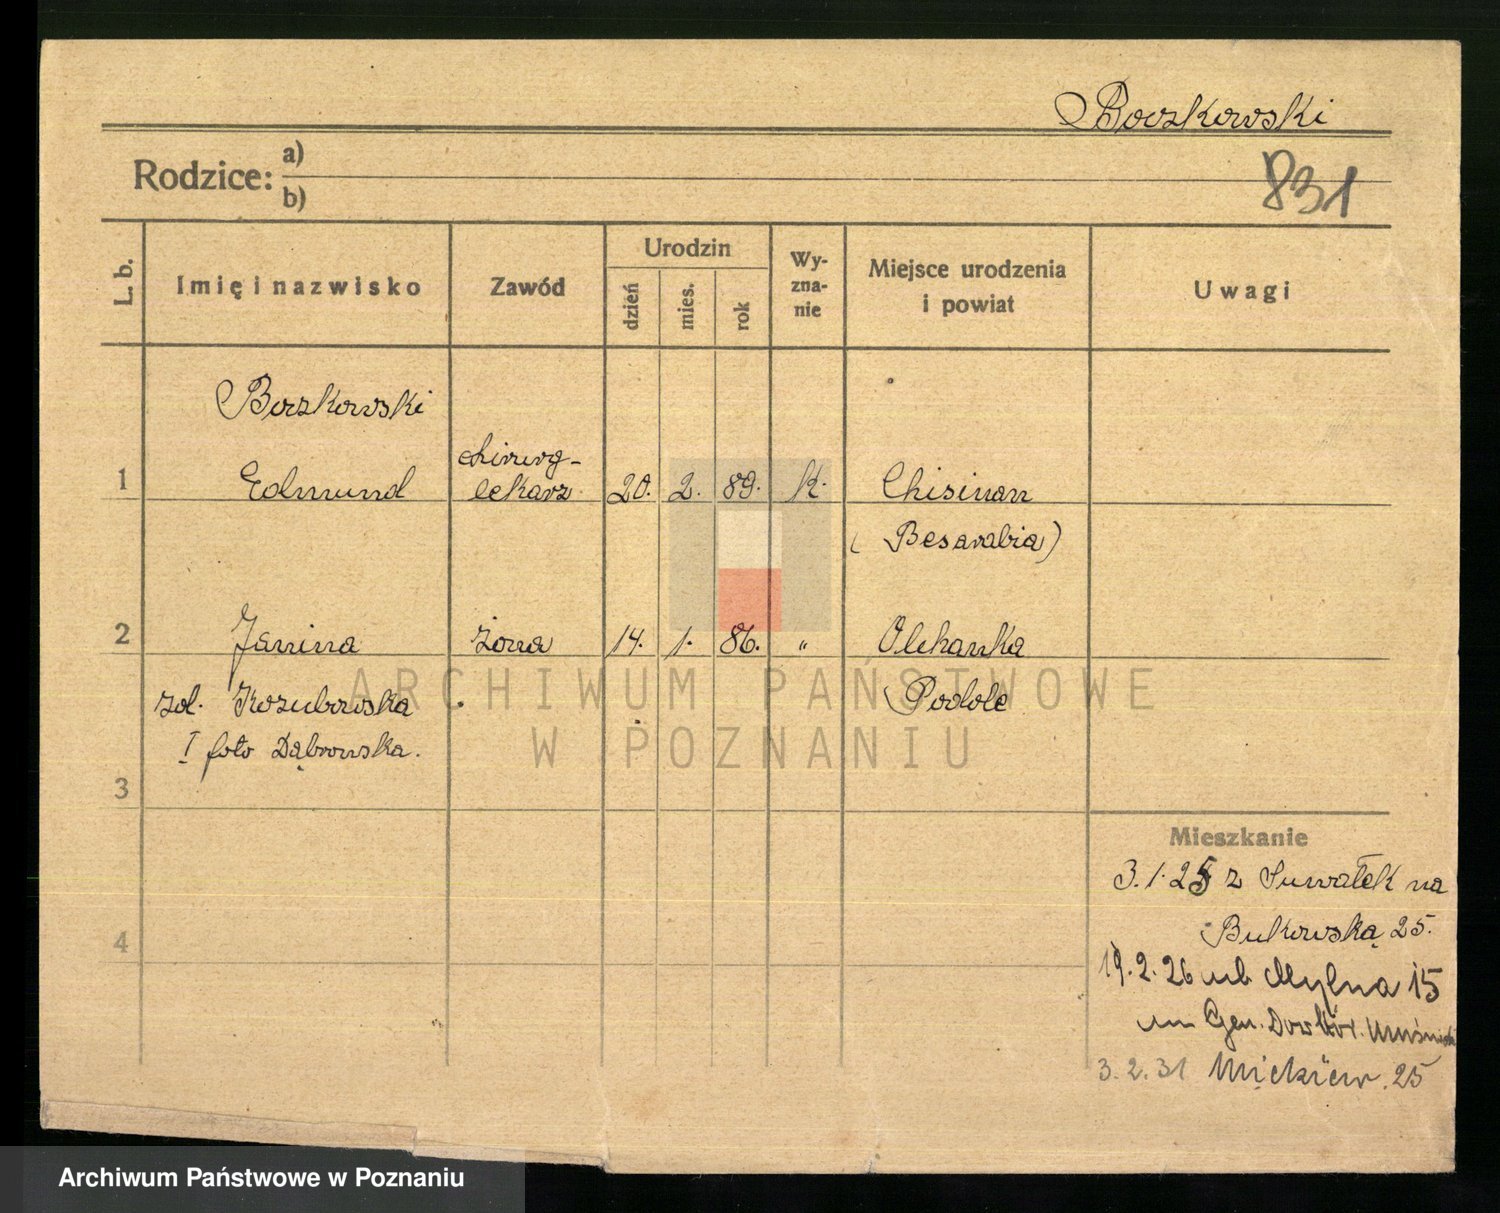 Boczkowski
Rodzice: a)
b)
831
L. b.
Imię i nazwisko
Zawód
Urodzin
dzień
mies.
rok
Wy-
zna-
nie
Miejsce urodzenia
i powiat
Uwagi
Boczkowski
1 Edmund chirurg-
lekarz 20. 2. 89. k. Chisinau
(Besarabia)
2 Janina żona 14. 1. 86. „ Olchanka
zd. Kozubowska Podole
I foto Dąbrowska.
3
Mieszkanie
3.1.25 z Suwałek na
Bukowską 25.
4
19.2.26 Młyna 15
Gen. Dowbór. Muśnick
3.2.31 Mickiew. 25
ARCHIWUM PAŃSTWOWE
W POZNANIU
Archiwum Państwowe w Poznaniu